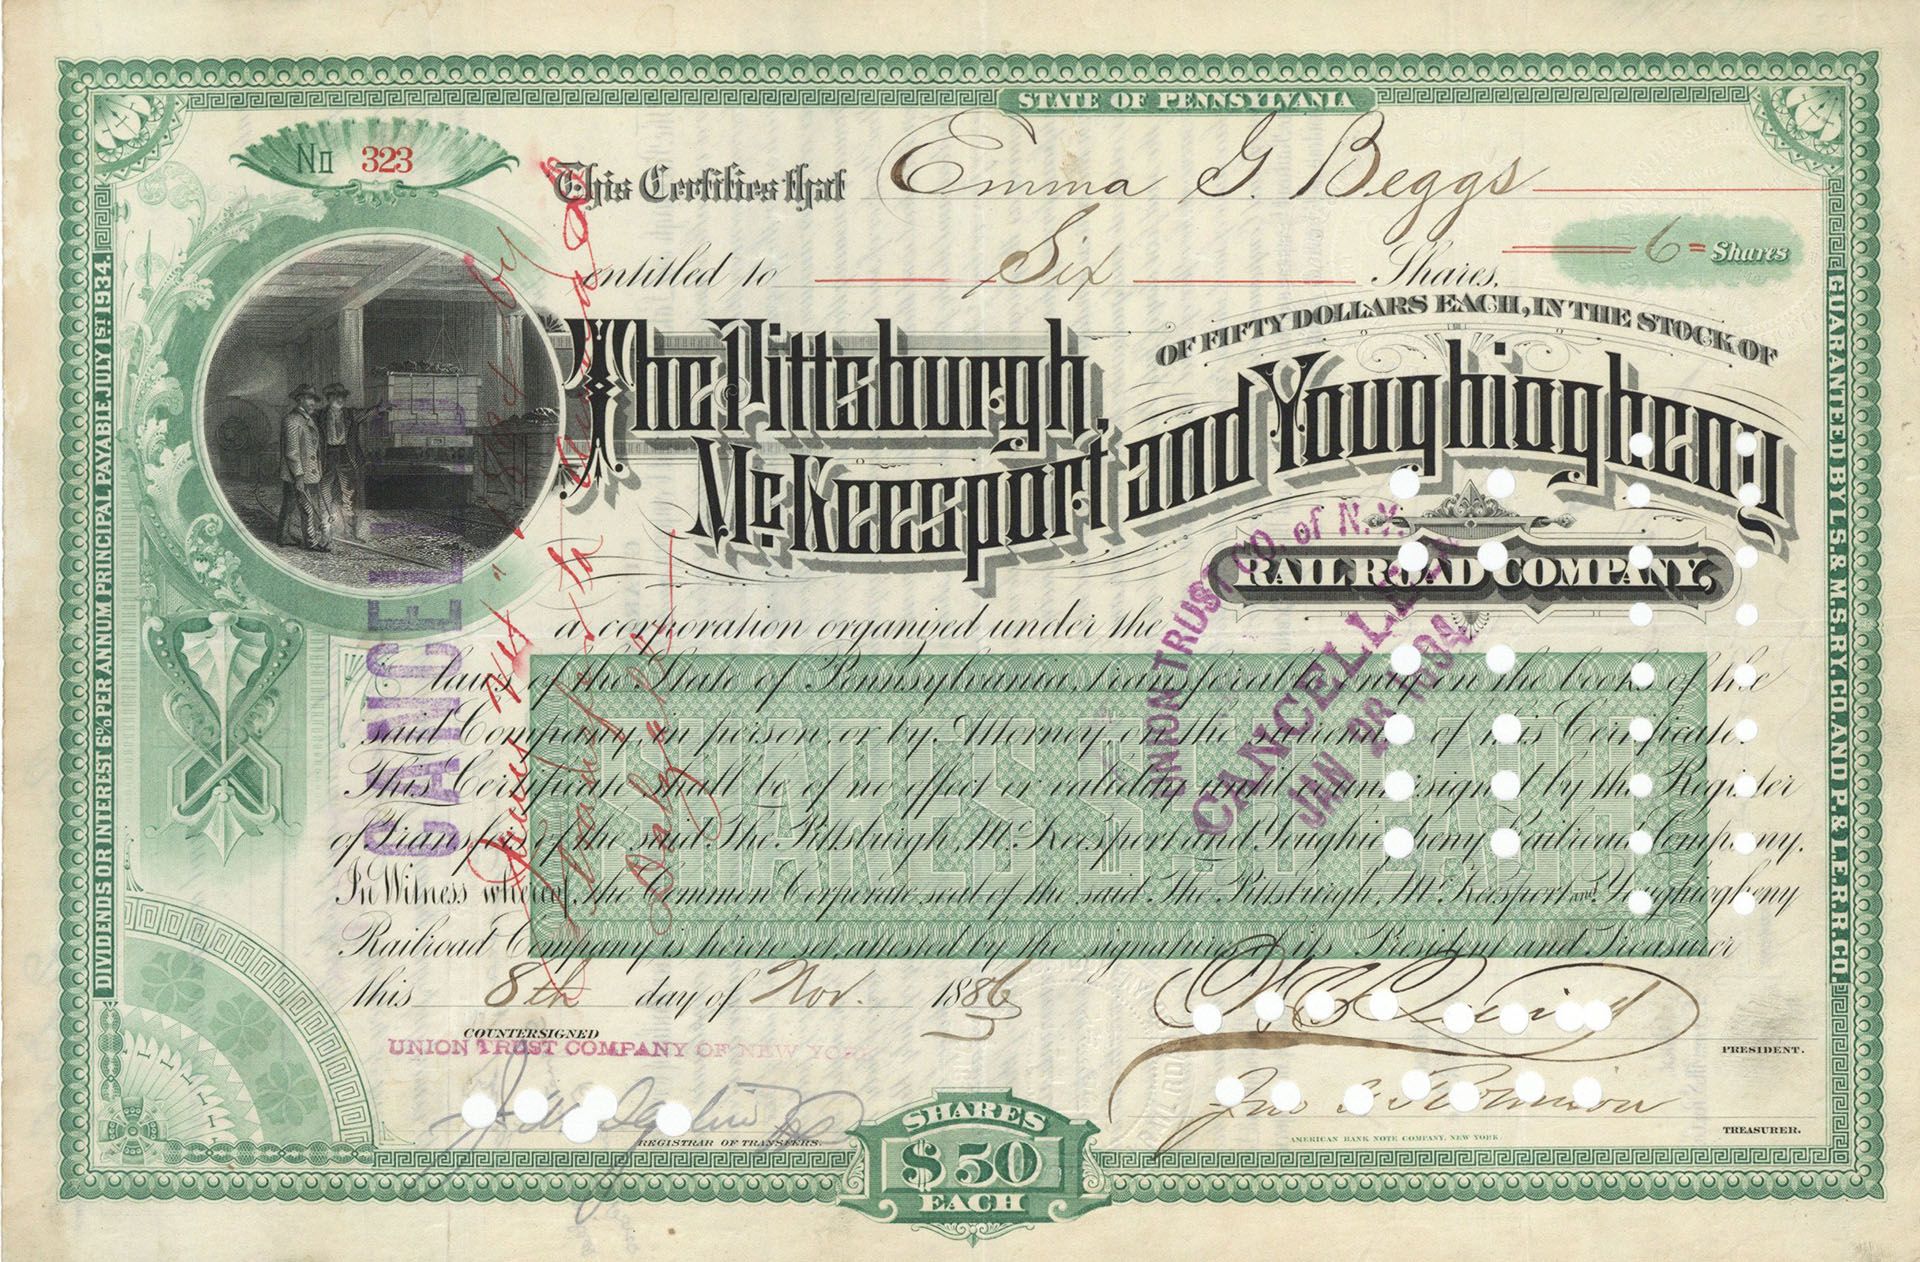 STATE OF PENNSYLVANIA
No 323
This Certifies that Emma G. Beggs
entitled to Six Shares,
6 = Shares
OF FIFTY DOLLARS EACH, IN THE STOCK OF
The Pittsburgh, McKeesport and Youghiogheny
RAILROAD COMPANY,
a corporation organized under the
laws of the State of Pennsylvania, transferable only on the books of the
said Company, in person, or by Attorney, on the surrender of this Certificate.
This Certificate shall be of no effect or validity until countersigned by the Register
of Transfers of the said The Pittsburgh, McKeesport and Youghiogheny Railroad Company.
In Witness whereof, the Common Corporate seal of the said The Pittsburgh, McKeesport and Youghiogheny
Railroad Company is hereto set, attested by the signatures of its President and Treasurer
this 8th day of Nov. 1886
SHARES $50 EACH
COUNTERSIGNED
UNION TRUST COMPANY OF NEW YORK
REGISTRAR OF TRANSFERS.
PRESIDENT.
Jno G Robinson
TREASURER.
AMERICAN BANK NOTE COMPANY, NEW YORK
SHARES
$50
EACH
DIVIDENDS OR INTEREST 6% PER ANNUM PRINCIPAL PAYABLE, JULY 1ST 1934.
GUARANTEED BY L.S. & M.S. RY. CO. AND P. & L.E. R.R. CO.
CANCELLED
UNION TRUST CO. of N.Y.
CANCELLED
JAN 28